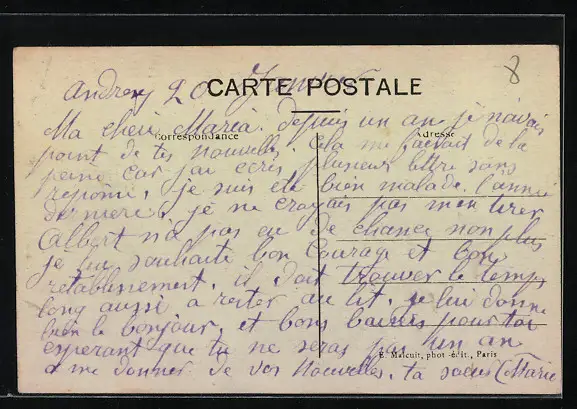 8
CARTE POSTALE
Correspondance
Adresse
Andrezy 20 Janvier
Ma cheir Maria. depuis un an je navais
point de tes nouvelles. Cela me faisait de la
peine car j'ai ecris plusieur lettre sans
reponse, je suis eté bien malade. l'année
derniere. je ne croyais pas men tirer
Albert n'a pas eu de chance non plus
je lui souhaite bon Courage et bon
retablissement. il doit trouver le temps
long aussi a rester au lit. je lui donne
bien le bonjour. et bons baisers pour toi
esperant que tu ne seras pas un an
a me donner de vos Nouvelles. ta soeur Marie
E. Malcuit, phot-édit., Paris